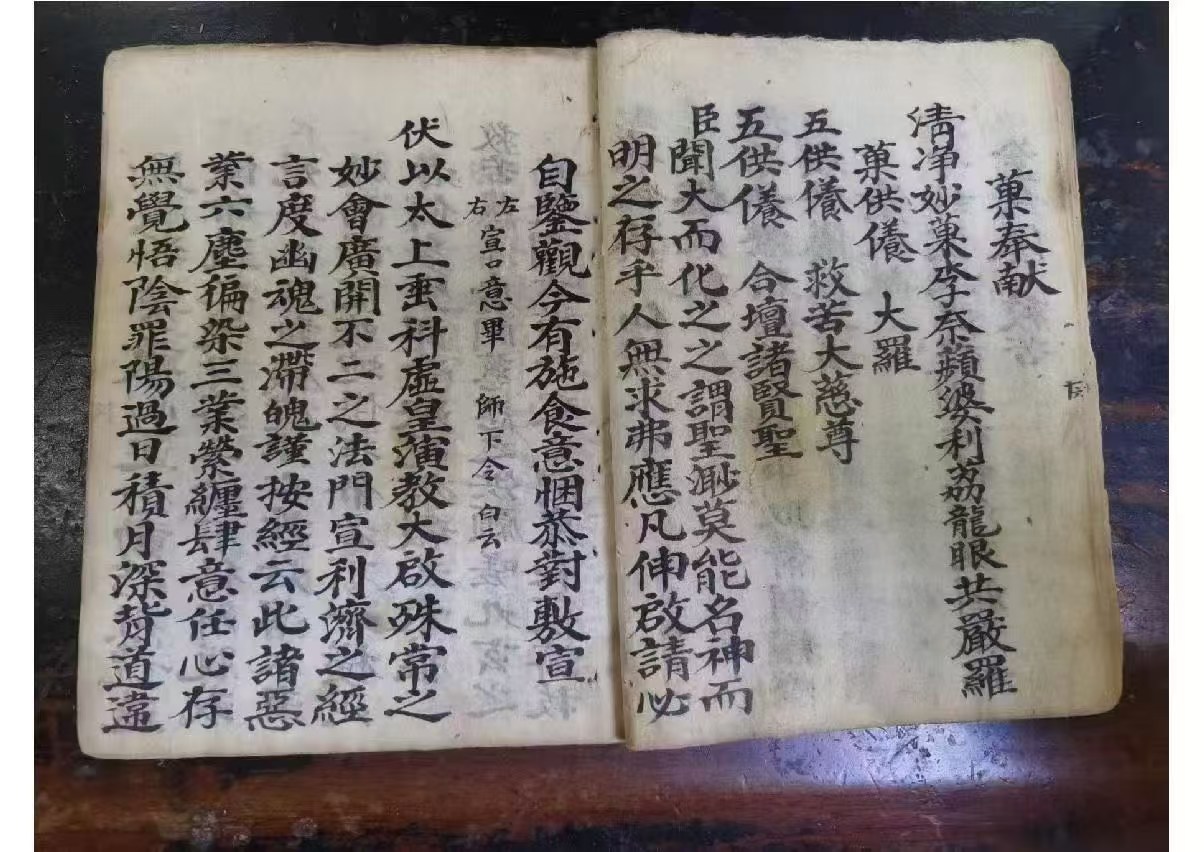 菓奉献
清净妙菓李奈蘋婆利荔龍眼共嚴羅
菓供養　大羅
五供養　救苦大慈尊
五供養　合壇諸賢聖
臣聞大而化之之謂聖渺莫能名神而
明之存乎人無求弗應凡伸啟請必
自鑒觀今有施食意悃恭對敷宣
左右宣意畢　師下令　白云
伏以太上垂科虛皇演教大啟殊常之
妙會廣開不二之法門宣利濟之經
言度幽魂之滯魄謹按經云此諸惡
業六塵徧染三業縈纏肆意任心存
無覺悟陰罪陽過日積月深背道違